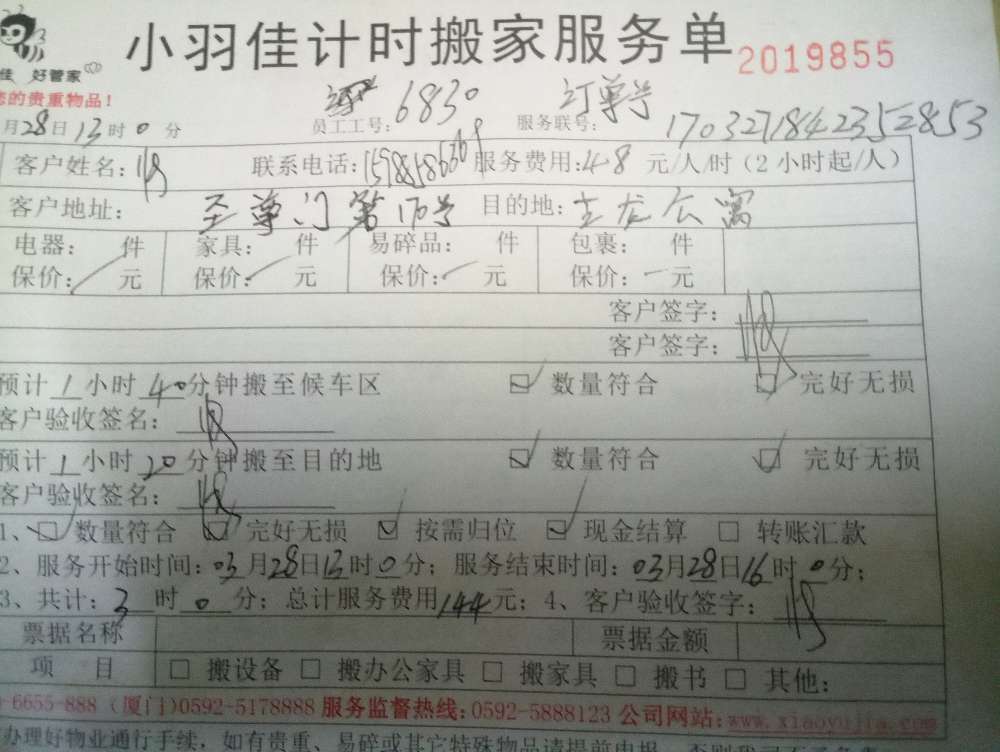 小羽佳计时搬家服务单 2019855
佳 好管家
您的贵重物品!
月28日13时0分 员工工号: 6830 服务联号: 订单号 170327184232352853
客户姓名: 联系电话: 服务费用:48元/人/时(2小时起/人)
客户地址: 至尊门第 号 目的地: 龙公寓
电器: 件 家具: 件 易碎品: 件 包裹: 件
保价: 元 保价: 元 保价: 元 保价: 元
客户签字:
客户签字:
预计1小时40分钟搬至候车区 数量符合 完好无损
客户验收签名:
预计1小时20分钟搬至目的地 数量符合 完好无损
客户验收签名:
1、 数量符合 完好无损 按需归位 现金结算 转账汇款
2、服务开始时间:03月28日13时0分; 服务结束时间:03月28日16时0分;
3、共计:3时0分; 总计服务费用144元; 4、客户验收签字:
票据名称 票据金额
项 目 搬设备 搬办公家具 搬家具 搬书 其他:
-6655-888 (厦门)0592-5178888 服务监督热线:0592-5888123 公司网站:www.xiaoyujia.com
办理好物业通行手续,如有贵重、易碎或其它特殊物品请提前申报,否则我